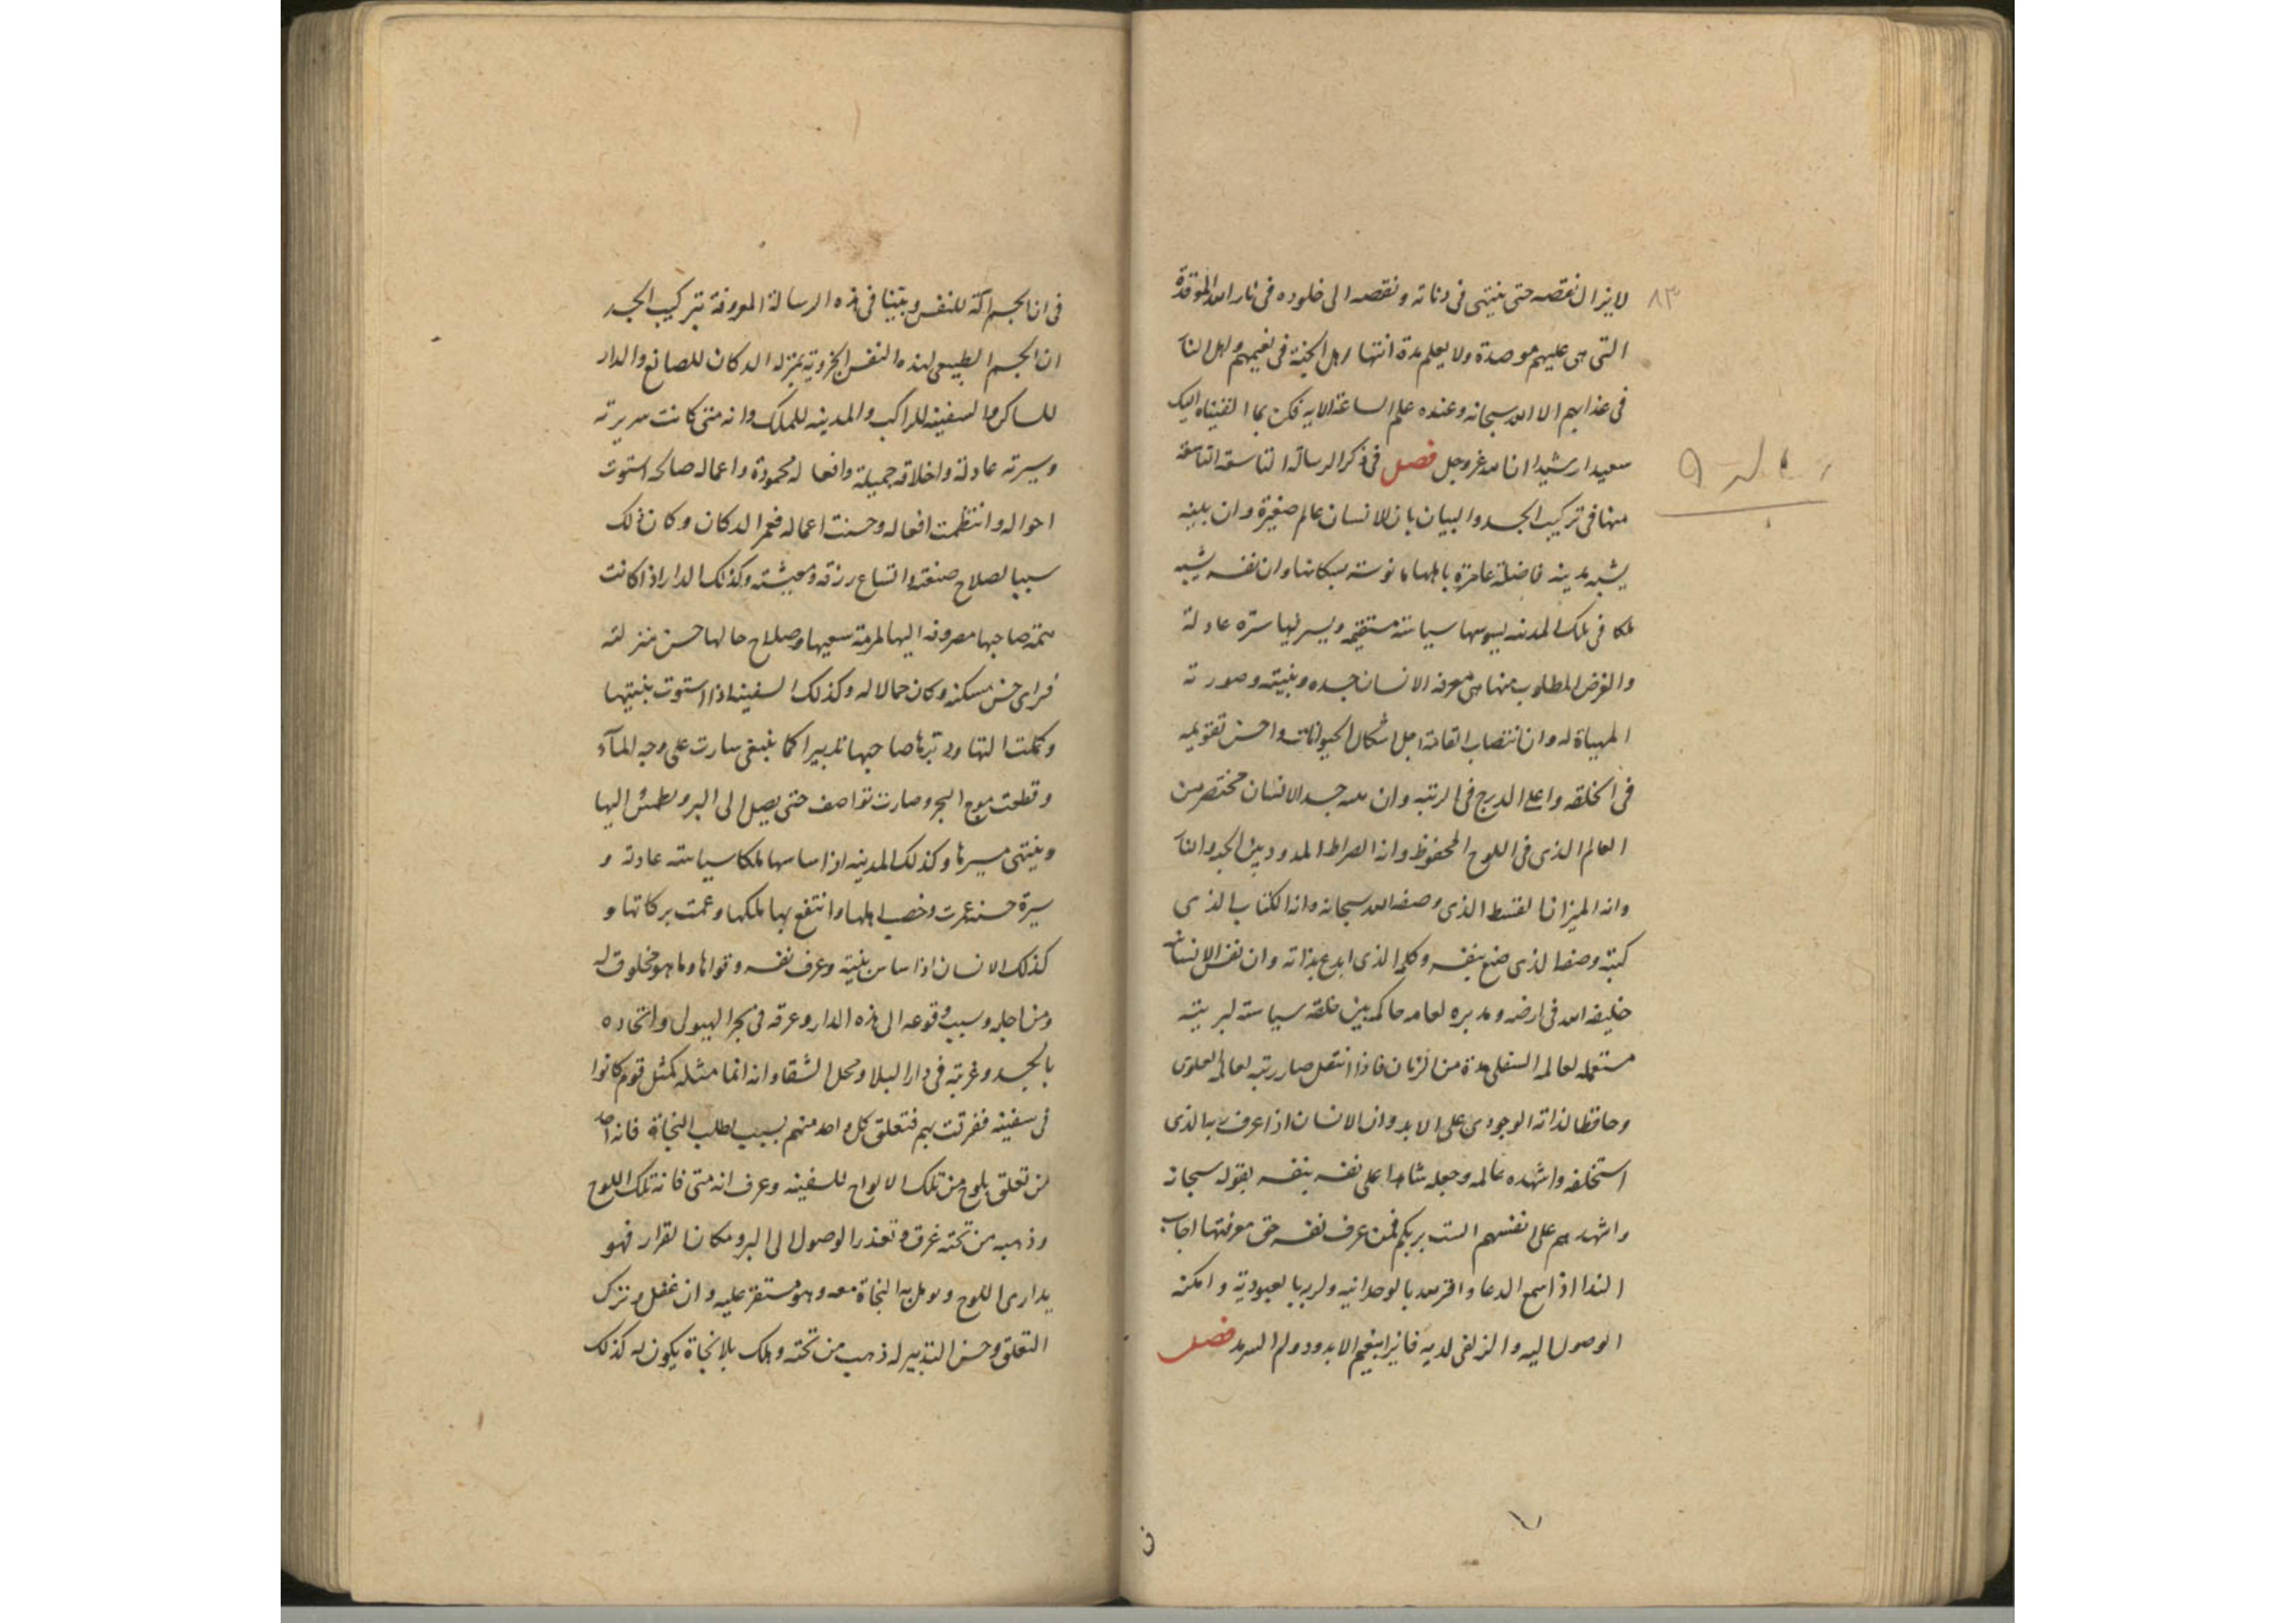 لا يزال نقصه حتى ينتهى فى دناته ونقصه الى خلوده فى نار الله الموقدة
٨٣
التى هى عليهم موصدة ولا يعلم مدة انتها اهل الجنة فى نعيمهم واهل النار
فى عذابهم الا الله سبحانه وعنده علم الساعة الايه فكن بما القيناه اليك
سعيدا رشيدا ان الله عز وجل فصل فى ذكر الرسالة التاسعة التاسعة
رسالة ٩
منها فى تركيب الجسد والبيان بان الانسان عالم صغيرة وان بنيته
يشبه مدينه فاضلة عامرة باهلها مانوسته بسكانها وان نفسه يشبه
ملكا فى تلك المدينه يسوسها سياسته مستقيمه ويسير فيها سيرة عادلة
والغرض المطلوب منها هى معرفه الانسان جسده وبنيته وصورته
المهياة له وان انتصاب القامة اجل اشكال الحيوانات واحسن تقويمه
فى الخلقه واعلى الدرج فى الرتبه وان بنيه جسد الانسان مختصر من
العالم الذى فى اللوح المحفوظ وانه الصراط الممدود بين الجنه والنار
وانه الميزان القسط الذى وصفه الله سبحانه وانه الكتاب الذى
كتبه وصنعه الذى صنع بنفسه وكلمه الذى ابدع بذاته وان نفس الانسان
خليفه الله فى ارضه ومدبره لعالمه حاكمه بين خلقه سياسته لبريته
مستعمله لعالمه السفلى مدة من الزمان فاذا انتقل صار رتبه لعالمه العلوى
وحافظا لذاته الوجودى على الابد وان الانسان اذا عرف ربه الذى
استخلفه واشهده عالمه وجعله شاهدا على نفسه بنفسه بقوله سبحانه
واشهدهم على انفسهم الست بربكم فمن عرف نفسه حق معرفتها اجاب
الندا اذا سمع الدعا واقر لله بالوحدانيه ولربه بالعبودية وامكنه
الوصول اليه والزلفى لديه فايزا بنعيم الابد ودوام السرمد فصل
فى ان الجسم آلة للنفس وبينا فى هذه الرسالة المعروفة بتركيب الجسد
ان الجسم الطبيعى لهذه النفس الجزوية بمنزله الدكان للصانع والدار
للساكن والسفينه للراكب والمدينه للملك وانه متى كانت سريرته
وسيرته عادلة واخلاقه جميلة وافعاله محمودة واعماله صالحه استوت
احواله وانتظمت افعاله وحسنت اعماله فعمر الدكان وكان ذلك
سببا لصلاح صنعته واتساع رزقه ومعيشته وكذلك الدار اذا كانت
همة صاحبها مصروفه اليها لمرمة سعيها وصلاح حالها حسن منزلته
فراى حسن مسكنه وكان جمالا له وكذلك السفينه اذا استوت بنيتها
وكملت التها ودبرها صاحبها تدبيرا كما ينبغى سارت على وجه المآء
وقطعت موج البحر وصارت تواصف حتى يصل الى البر ويطمئن اليها
وينتهى مسيرها وكذلك المدينه اذا ساسها ملكا سياسته عادته و
سيرة حسنه عمرت وخصب اهلها وانتفع بها ملكها وعمت بركاتها و
كذلك الانسان اذا ساس بنيته وعرف نفسه وقواها وما هو مخلوق له
ومن اجله وسبب وقوعه الى هذه الدار وغرقه فى بحر الهيولى واتحاده
بالجسد وغربته فى دار البلا ومحل الشقا وانه انما مثله كمثل قوم كانوا
فى سفينه فغرقت بهم فتعلق كل واحد منهم بسبب يطلب النجاة فانه احد
من تعلق بلوح من تلك الالواح للسفينه وعرف انه متى فاته تلك اللوح
وذهب من تحته غرق وتعذر الوصول الى البر ومكان القرار فهو
يدارى اللوح ويومل به النجاة معه وهو مستقر عليه وان غفل وترك
التعلق وحسن التدبير له ذهب من تحته وهلك بلا نجاة يكون له كذلك